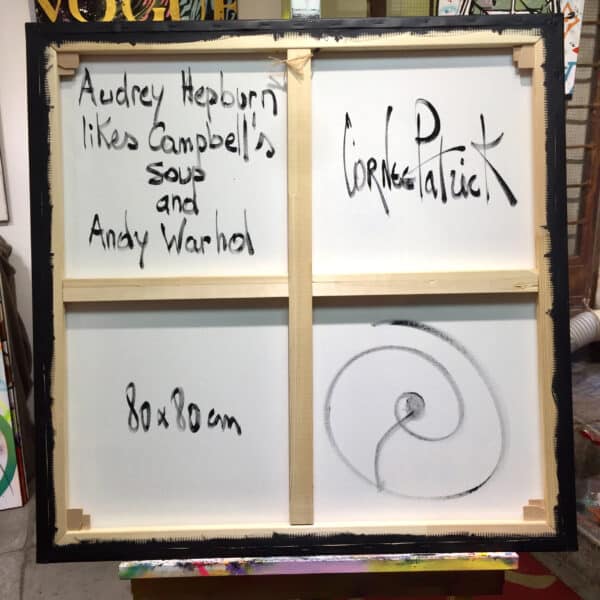 VOGUE
Audrey Hepburn
likes Campbell's
soup
and
Andy Warhol
Cornee Patrick
80x80cm